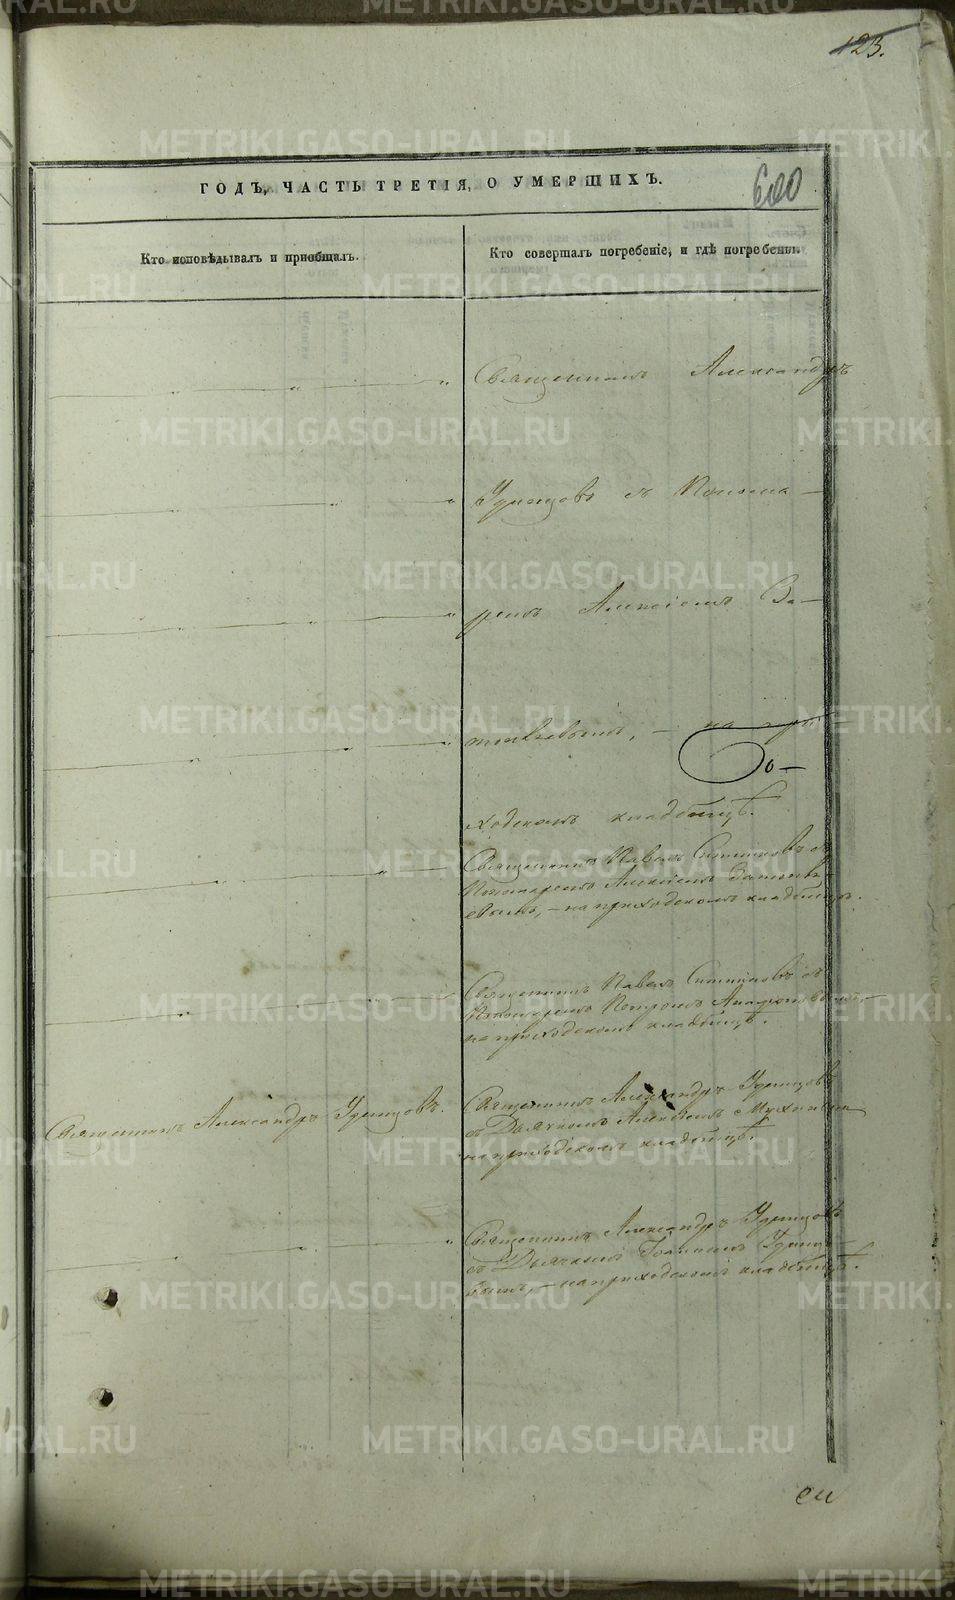 123.
ГОДЪ, ЧАСТЬ ТРЕТІЯ, О УМЕРШИХЪ.
600
Кто исповѣдывалъ и пріобщалъ.
Кто совершалъ погребеніе, и гдѣ погребены.
Священникъ Александръ
Удинцовъ съ Понома-
ремъ Алексіемъ За-
на при-
до-
ходскомъ кладбищѣ.
Священникъ Павелъ съ
Пономаремъ Алексіемъ
на приходскомъ кладбищѣ.
Священникъ Павелъ съ
Пономаремъ Петромъ
на приходскомъ кладбищѣ.
Священникъ Александръ Удинцовъ.
Священникъ Александръ Удинцовъ
съ Дьячкомъ Алексіемъ
на приходскомъ кладбищѣ.
Священникъ Александръ Удинцовъ
съ Дьячкомъ Іоанномъ Удинцо-
вымъ, на приходскомъ кладбищѣ.
METRIKI.GASO-URAL.RU